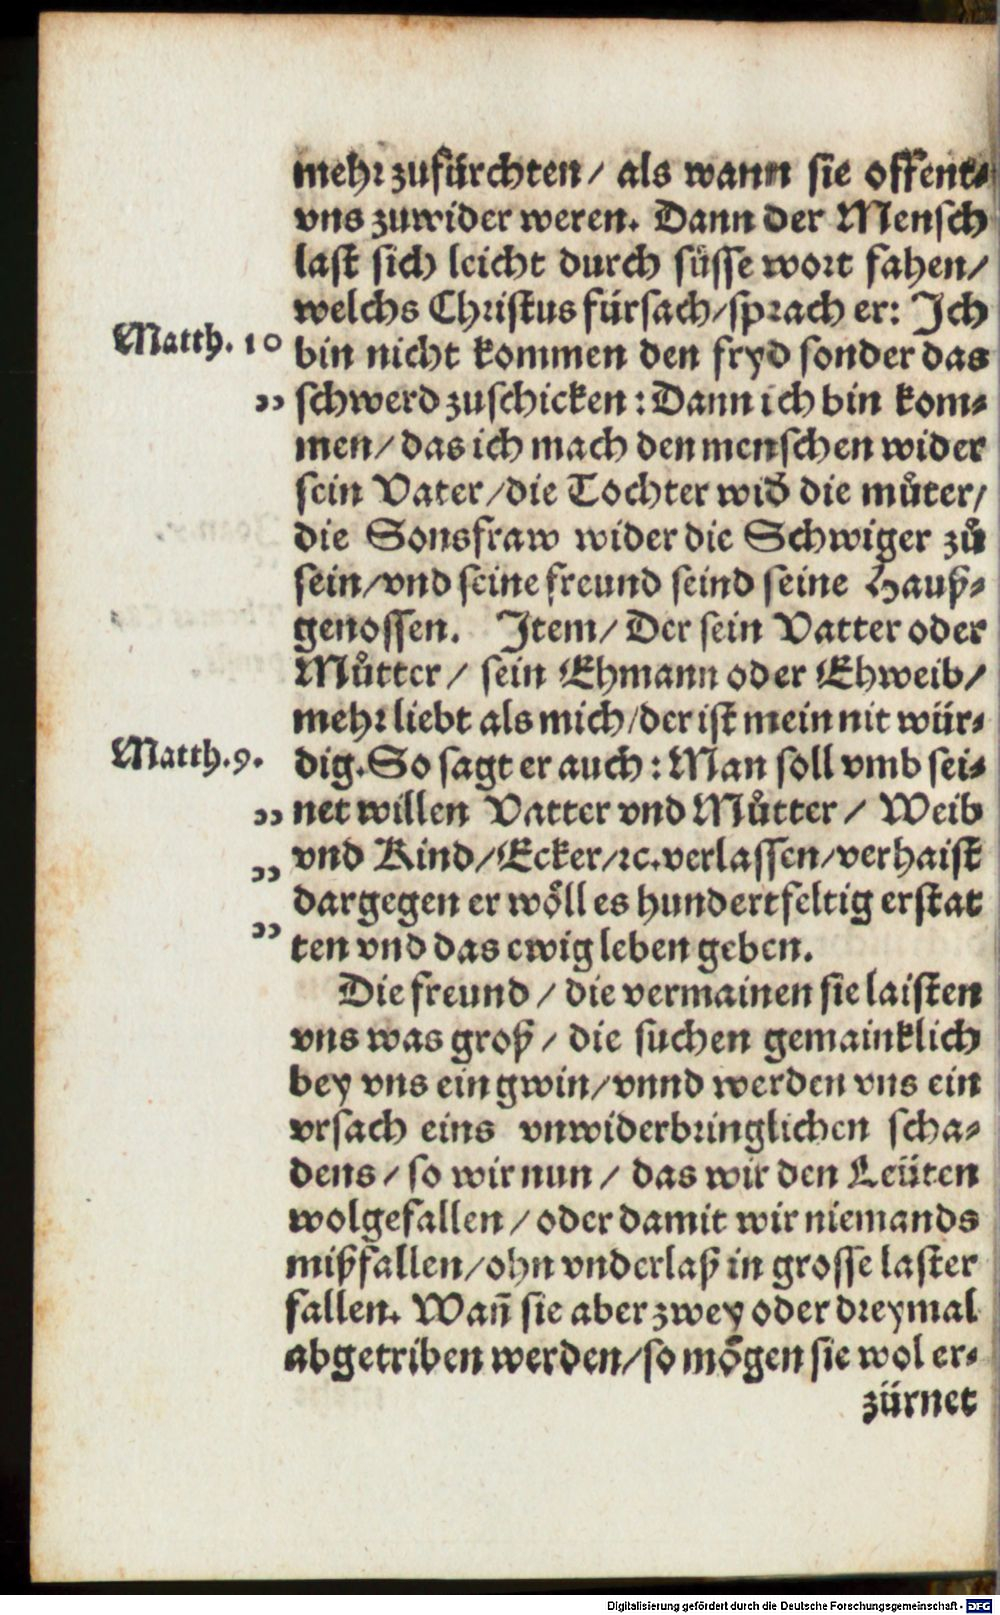 mehr zufürchten / als wann sie offent⸗
vns zuwider weren. Dann der Mensch
last sich leicht durch süsse wort fahen/
welchs Christus fürsach/sprach er: Ich
Matth. 10 bin nicht kommen den fryd sonder das
„ schwerd zuschicken: Dann ich bin kom⸗
men/das ich mach den menschen wider
sein Vater/die Tochter widꝺ die můter/
die Sonsfraw wider die Schwiger zů
sein/vnd seine freund seind seine Hauß⸗
genossen. Item/ Der sein Vatter oder
Můtter / sein Ehmann oder Ehweib/
mehr liebt als mich/der ist mein nit wür⸗
Matth.9. dig. So sagt er auch: Man soll vmb sei⸗
„ net willen Vatter vnd Můtter / Weib
„ vnd Kind/Ecker/ꝛc.verlassen/verhaist
dargegen er wöll es hundertfeltig erstat
„ ten vnd das ewig leben geben.
Die freund / die vermainen sie laisten
vns was groß / die suchen gemainklich
bey vns ein gwin/vnnd werden vns ein
vrsach eins vnwiderbringlichen scha⸗
dens / so wir nun / das wir den Leüten
wolgefallen / oder damit wir niemands
mißfallen/ohn vnderlaß in grosse laster
fallen. Wañ sie aber zwey oder dreymal
abgetriben werden/so mögen sie wol er⸗
zürnet
Digitalisierung gefördert durch die Deutsche Forschungsgemeinschaft - DFG